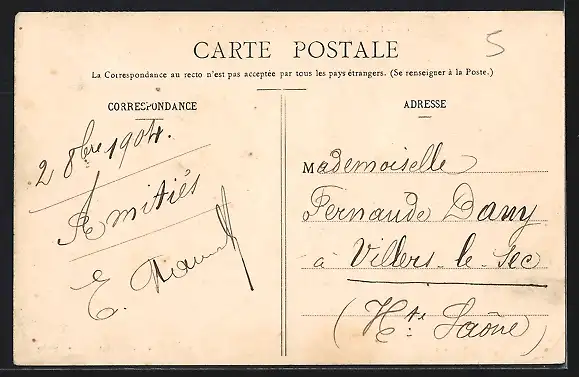 CARTE POSTALE
5
La Correspondance au recto n'est pas acceptée par tous les pays étrangers. (Se renseigner à la Poste.)
CORRESPONDANCE
2 8bre 1904.
Amitiés
E.
ADRESSE
Mademoiselle
Fernande Dany
à Villers-le-Sec
(Hte Saône)